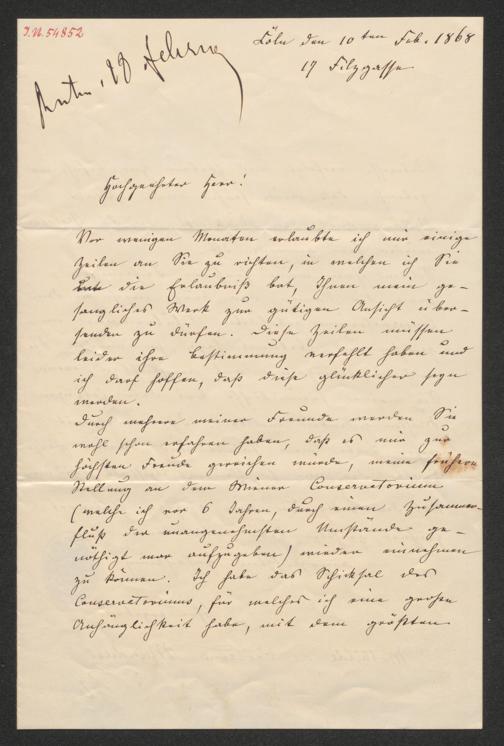 I.N. 54852
Cöln den 10ten Feb. 1868
17 Filzgasse
28 Febru
Hochgeehrter Herr!
Vor wenigen Monaten erlaubte ich mir einige
Zeilen an Sie zu richten, in welchen ich Sie
die Erlaubniß bat, Ihnen mein ge-
sangliches Werk zur gütigen Ansicht über-
senden zu dürfen. Diese Zeilen müssen
leider ihre Bestimmung verfehlt haben und
ich darf hoffen, daß diese glücklicher seyn
werden.
Durch mehrere meiner Freunde werden Sie
wohl schon erfahren haben, daß es mir zur
höchsten Freude gereichen würde, meine frühere
Stellung an dem Wiener Conservatorium
(welche ich vor 6 Jahren, durch einen Zusammen-
fluß der unangenehmsten Umstände ge-
nöthigt war aufzugeben) wieder einnehmen
zu können. Ich habe das Schicksal des
Conservatoriums, für welches ich eine große
Anhänglichkeit habe, mit dem größten